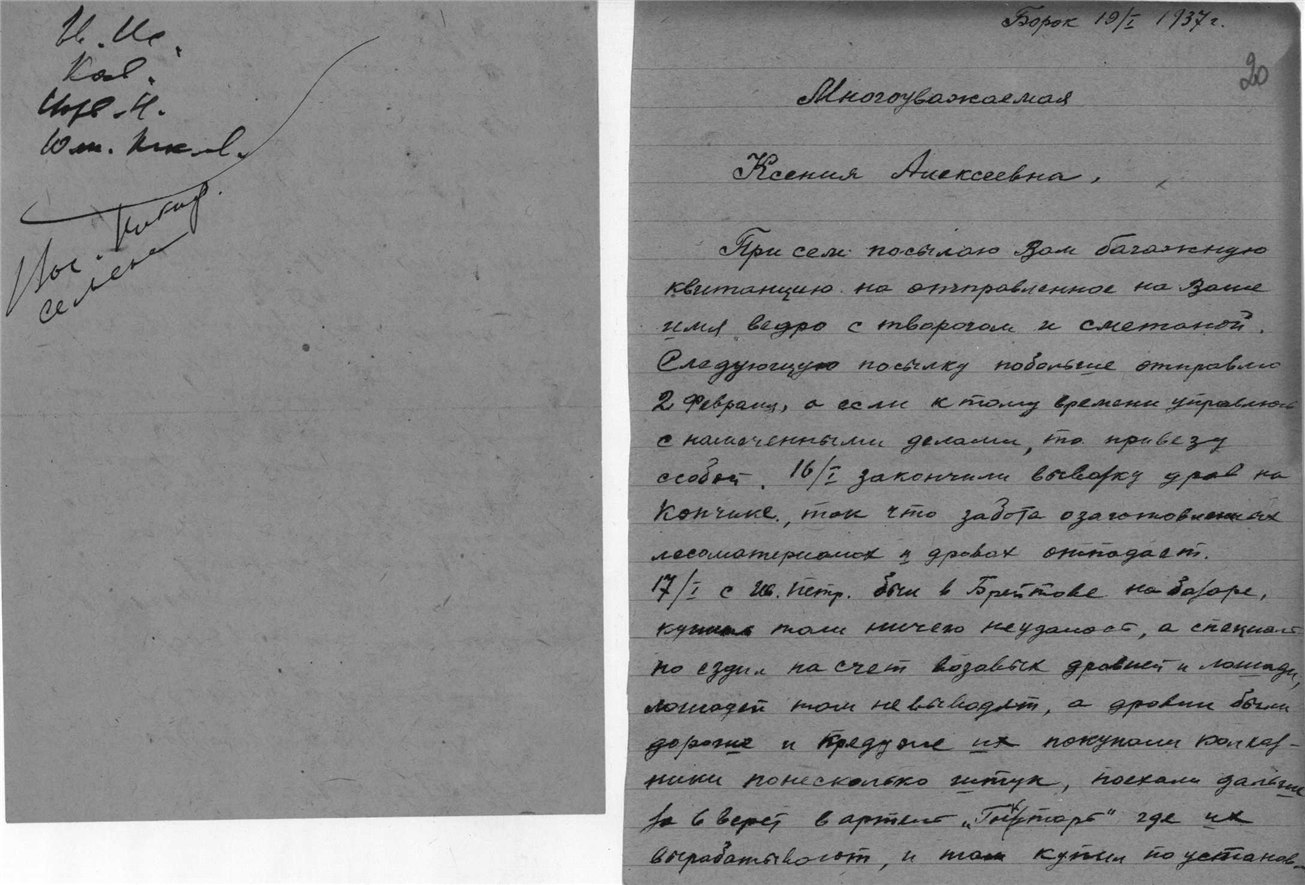 Кол.
семена
Борок 19/I 1937г.
20
Многоуважаемая
Ксения Алексеевна,
При сем посылаю Вам багажную
квитанцию на отправленное на Ваше
имя ведро с творогом и сметаной.
Следующую посылку побольше отправлю
2 февраля, а если к тому времени управлюсь
с намеченными делами, то привезу
ссобой. 16/I закончили вывозку дров на
Кончике, так что забота озаготовленных
лесоматериалах и дровах отпадает.
17/I с Ив. Петр. был в Брейтове на базаре,
купить там ничего неудалост, а специаль
но ездил на счет возавых дровней и лошади,
лошадей там невыводят, а дровни были
дороже и предуже их покупали колхоз-
ники понесколько штук, поехали дальше
за 6 верст в артель где их
вырабатывают, и там купил по установ-